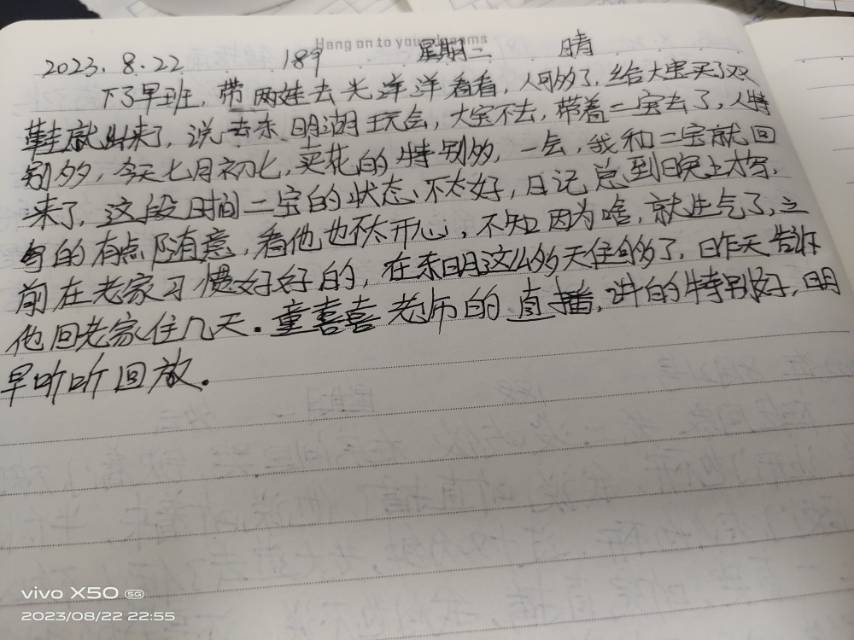 Hang on to your dreams
2023.8.22 189 星期二 晴
下了早班,带两娃去光洋洋看看,人可多了,给大宝买了双
鞋就出来了,说去东明湖玩会,大宝不去,带着二宝去了,人特
别多,今天七月初七,卖花的特别多,一会,我和二宝就回
来了,这段时间二宝的状态不太好,日记总到晚上才写,
写的有点随意,看他也不太开心,不知因为啥,就生气了,之
前在老家习惯好好的,在东明这么多天住够了,昨天告诉
他回老家住几天。童喜喜老师的直播,讲的特别好,明
早听听回放。
vivo X50 5G
2023/08/22 22:55